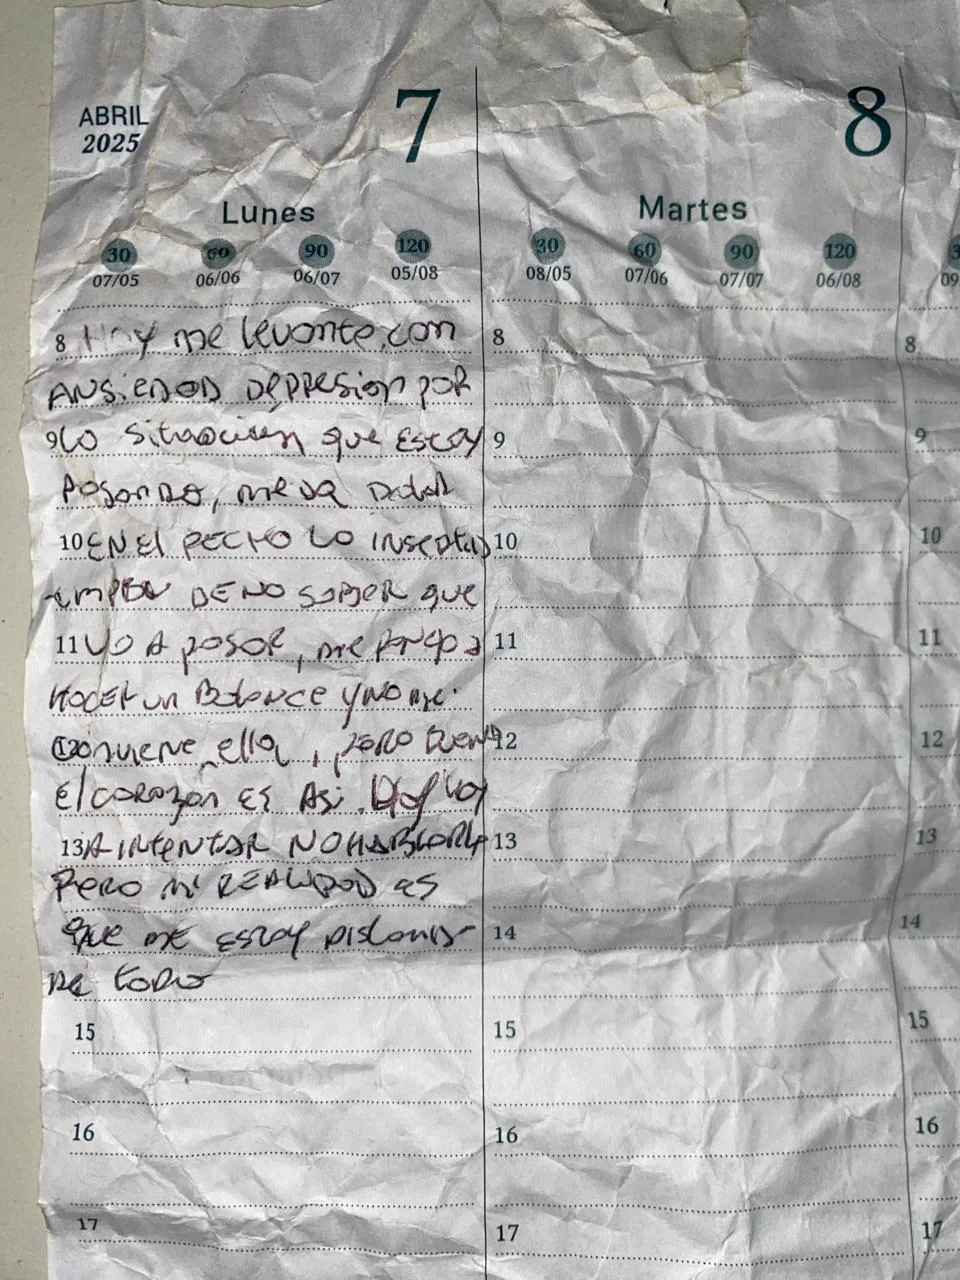 ABRIL 7 8
2025
Lunes Martes
30 60 90 120 30 60 90 120
07/05 06/06 06/07 05/08 08/05 07/06 07/07 06/08 09
8 Hoy me levante, con 8 8
ANSIEDAD DEPRESION POR
9 LA situacion que estoy 9 9
PASANDO, me da
10 EN El PECHO LO 10 10
DE NO SABER que
11 VA A PASAR, me pongo a 11 11
HACER un Balance y NO me
12 conviene ella, PERO bueno 12 12
El corazon es Asi. Hoy voy
13 A INTENTAR NO HABLARLE 13 13
PERO mi REALIDAD es
QUE ME ESTOY 14 14
DE todo
15 15 15
16 16 16
17 17 17